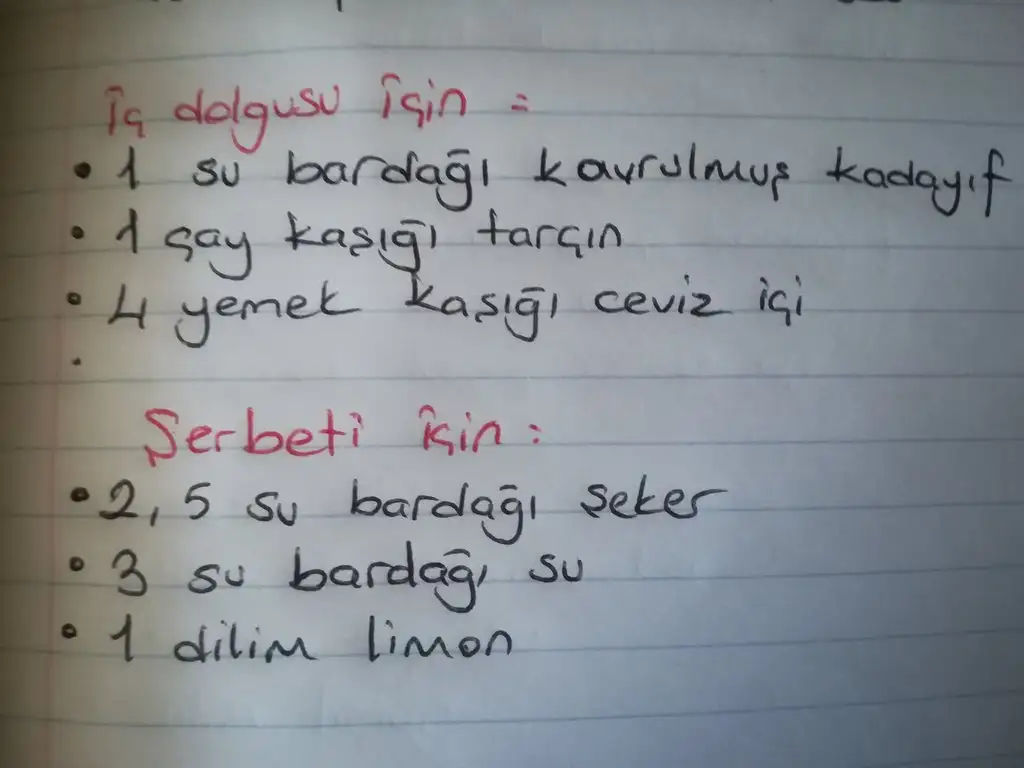 İç dolgusu için :
• 1 su bardağı kavrulmuş kadayıf
• 1 çay kaşığı tarçın
• 4 yemek kaşığı ceviz içi
•
Şerbeti için :
• 2,5 su bardağı şeker
• 3 su bardağı su
• 1 dilim limon